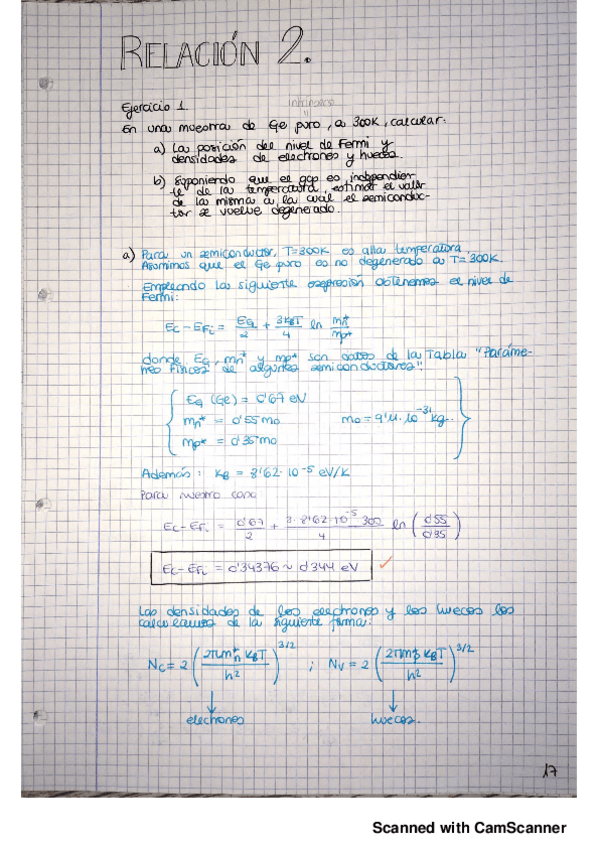 RELACIÓN 2.
Ejercicio 1.
intrínseco
En una muestra de Ge puro, a 300K, calcular:
a) La posición del nivel de Fermi y
densidades de electrones y huecos.
b) Suponiendo que el gap es independien-
te de la temperatura, estimar el valor
de la misma a la cual el semiconduc-
tor se vuelve degenerado.
a) Para un semiconductor, T=300K es alta temperatura.
Asumimos que el Ge puro es no degenerado a T=300K.
Empleando la siguiente expresión obtenemos el nivel de
Fermi:
Ec-EFi = EG/2 + 3KBT/4 ln mn*/mp*
donde EG, mn* y mp* son datos de la Tabla "Paráme-
tros Físicos de algunos semiconductores":
EG (Ge) = 0'67 eV
mn* = 0'55 mo mo = 9'11·10^-31 kg.
mp* = 0'35 mo
Además: KB = 8'62·10^-5 eV/K
Para nuestro caso
Ec-EFi = 0'67/2 + 3·8'62·10^-5·300/4 ln (0'55/0'35)
Ec-EFi = 0'34376 ~ 0'344 eV ✓
Las densidades de los electrones y los huecos las
calculamos de la siguiente forma:
Nc = 2 (2πmn* KBT/h²)^3/2 ; Nv = 2 (2πmp* KBT/h²)^3/2
electrones huecos.
17
Scanned with CamScanner